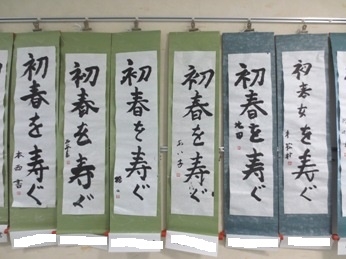 初春を寿ぐ
初春を寿ぐ
初春を寿ぐ
初春を寿ぐ
初春を寿ぐ
初春を寿ぐ